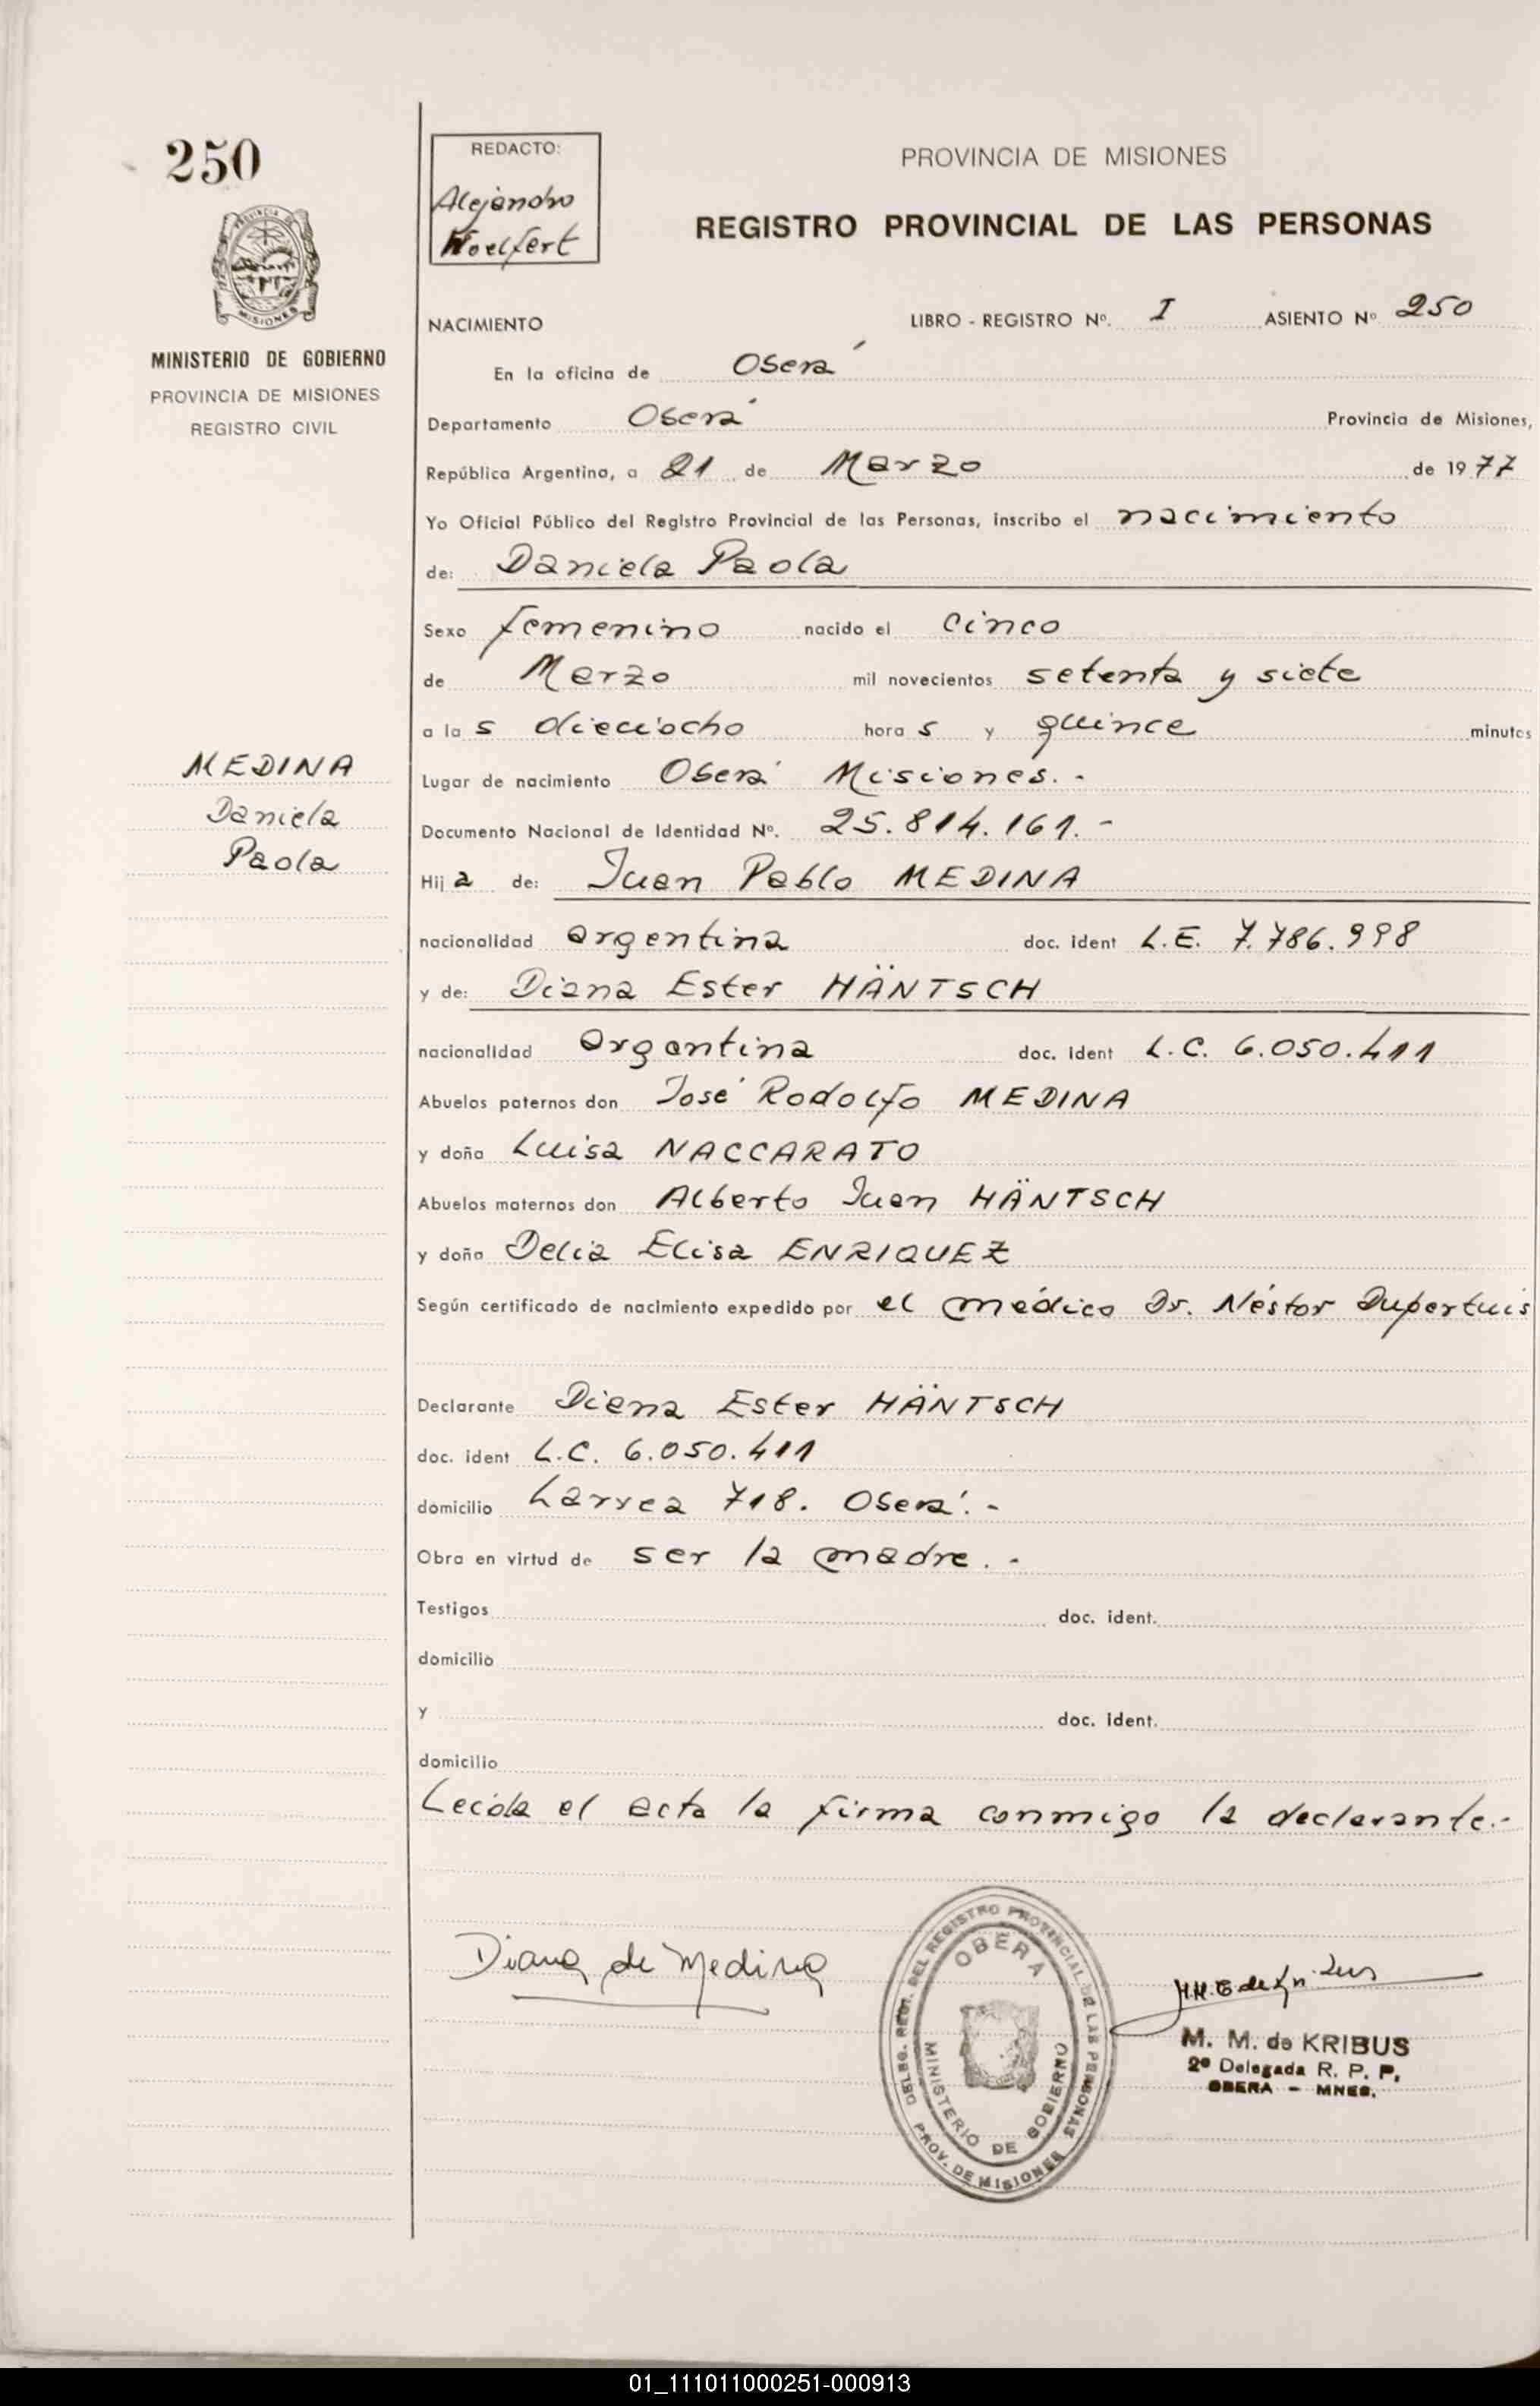 250
PROVINCIA DE MISIONES
MINISTERIO DE GOBIERNO
PROVINCIA DE MISIONES
REGISTRO CIVIL
MEDINA
Daniela
Paola
REDACTO:
Alejandro
Woelfert
PROVINCIA DE MISIONES
REGISTRO PROVINCIAL DE LAS PERSONAS
NACIMIENTO LIBRO - REGISTRO Nº. I ASIENTO Nº 250
En la oficina de Oberá
Departamento Oberá Provincia de Misiones,
República Argentina, a 21 de Marzo de 1977
Yo Oficial Público del Registro Provincial de las Personas, inscribo el nacimiento
de: Daniela Paola
Sexo femenino nacido el cinco
de Marzo mil novecientos setenta y siete
a las dieciocho horas y quince minutos
Lugar de nacimiento Oberá Misiones.-
Documento Nacional de Identidad Nº. 25.814.161.-
Hija de: Juan Pablo MEDINA
nacionalidad argentina doc. ident L.E. 7.786.998
y de: Diana Ester HÄNTSCH
nacionalidad argentina doc. ident L.C. 6.050.411
Abuelos paternos don José Rodolfo MEDINA
y doña Luisa NACCARATO
Abuelos maternos don Alberto Juan HÄNTSCH
y doña Delia Elisa ENRIQUEZ
Según certificado de nacimiento expedido por el médico Dr. Néstor Dupertuis
Declarante Diana Ester HÄNTSCH
doc. ident L.C. 6.050.411
domicilio Larrea 718. Oberá.-
Obra en virtud de ser la madre.-
Testigos doc. ident.
domicilio
y doc. ident.
domicilio
Leída el acta la firma conmigo la declarante.-
Diana de Medina
DELEG. REGT. DEL REGISTRO PROVINCIAL DE LAS PERSONAS
OBERA
MINISTERIO DE GOBIERNO
PROV. DE MISIONES
M. M. de KRIBUS
2ª Delegada R. P. P.
OBERA - MNES.
01_111011000251-000913